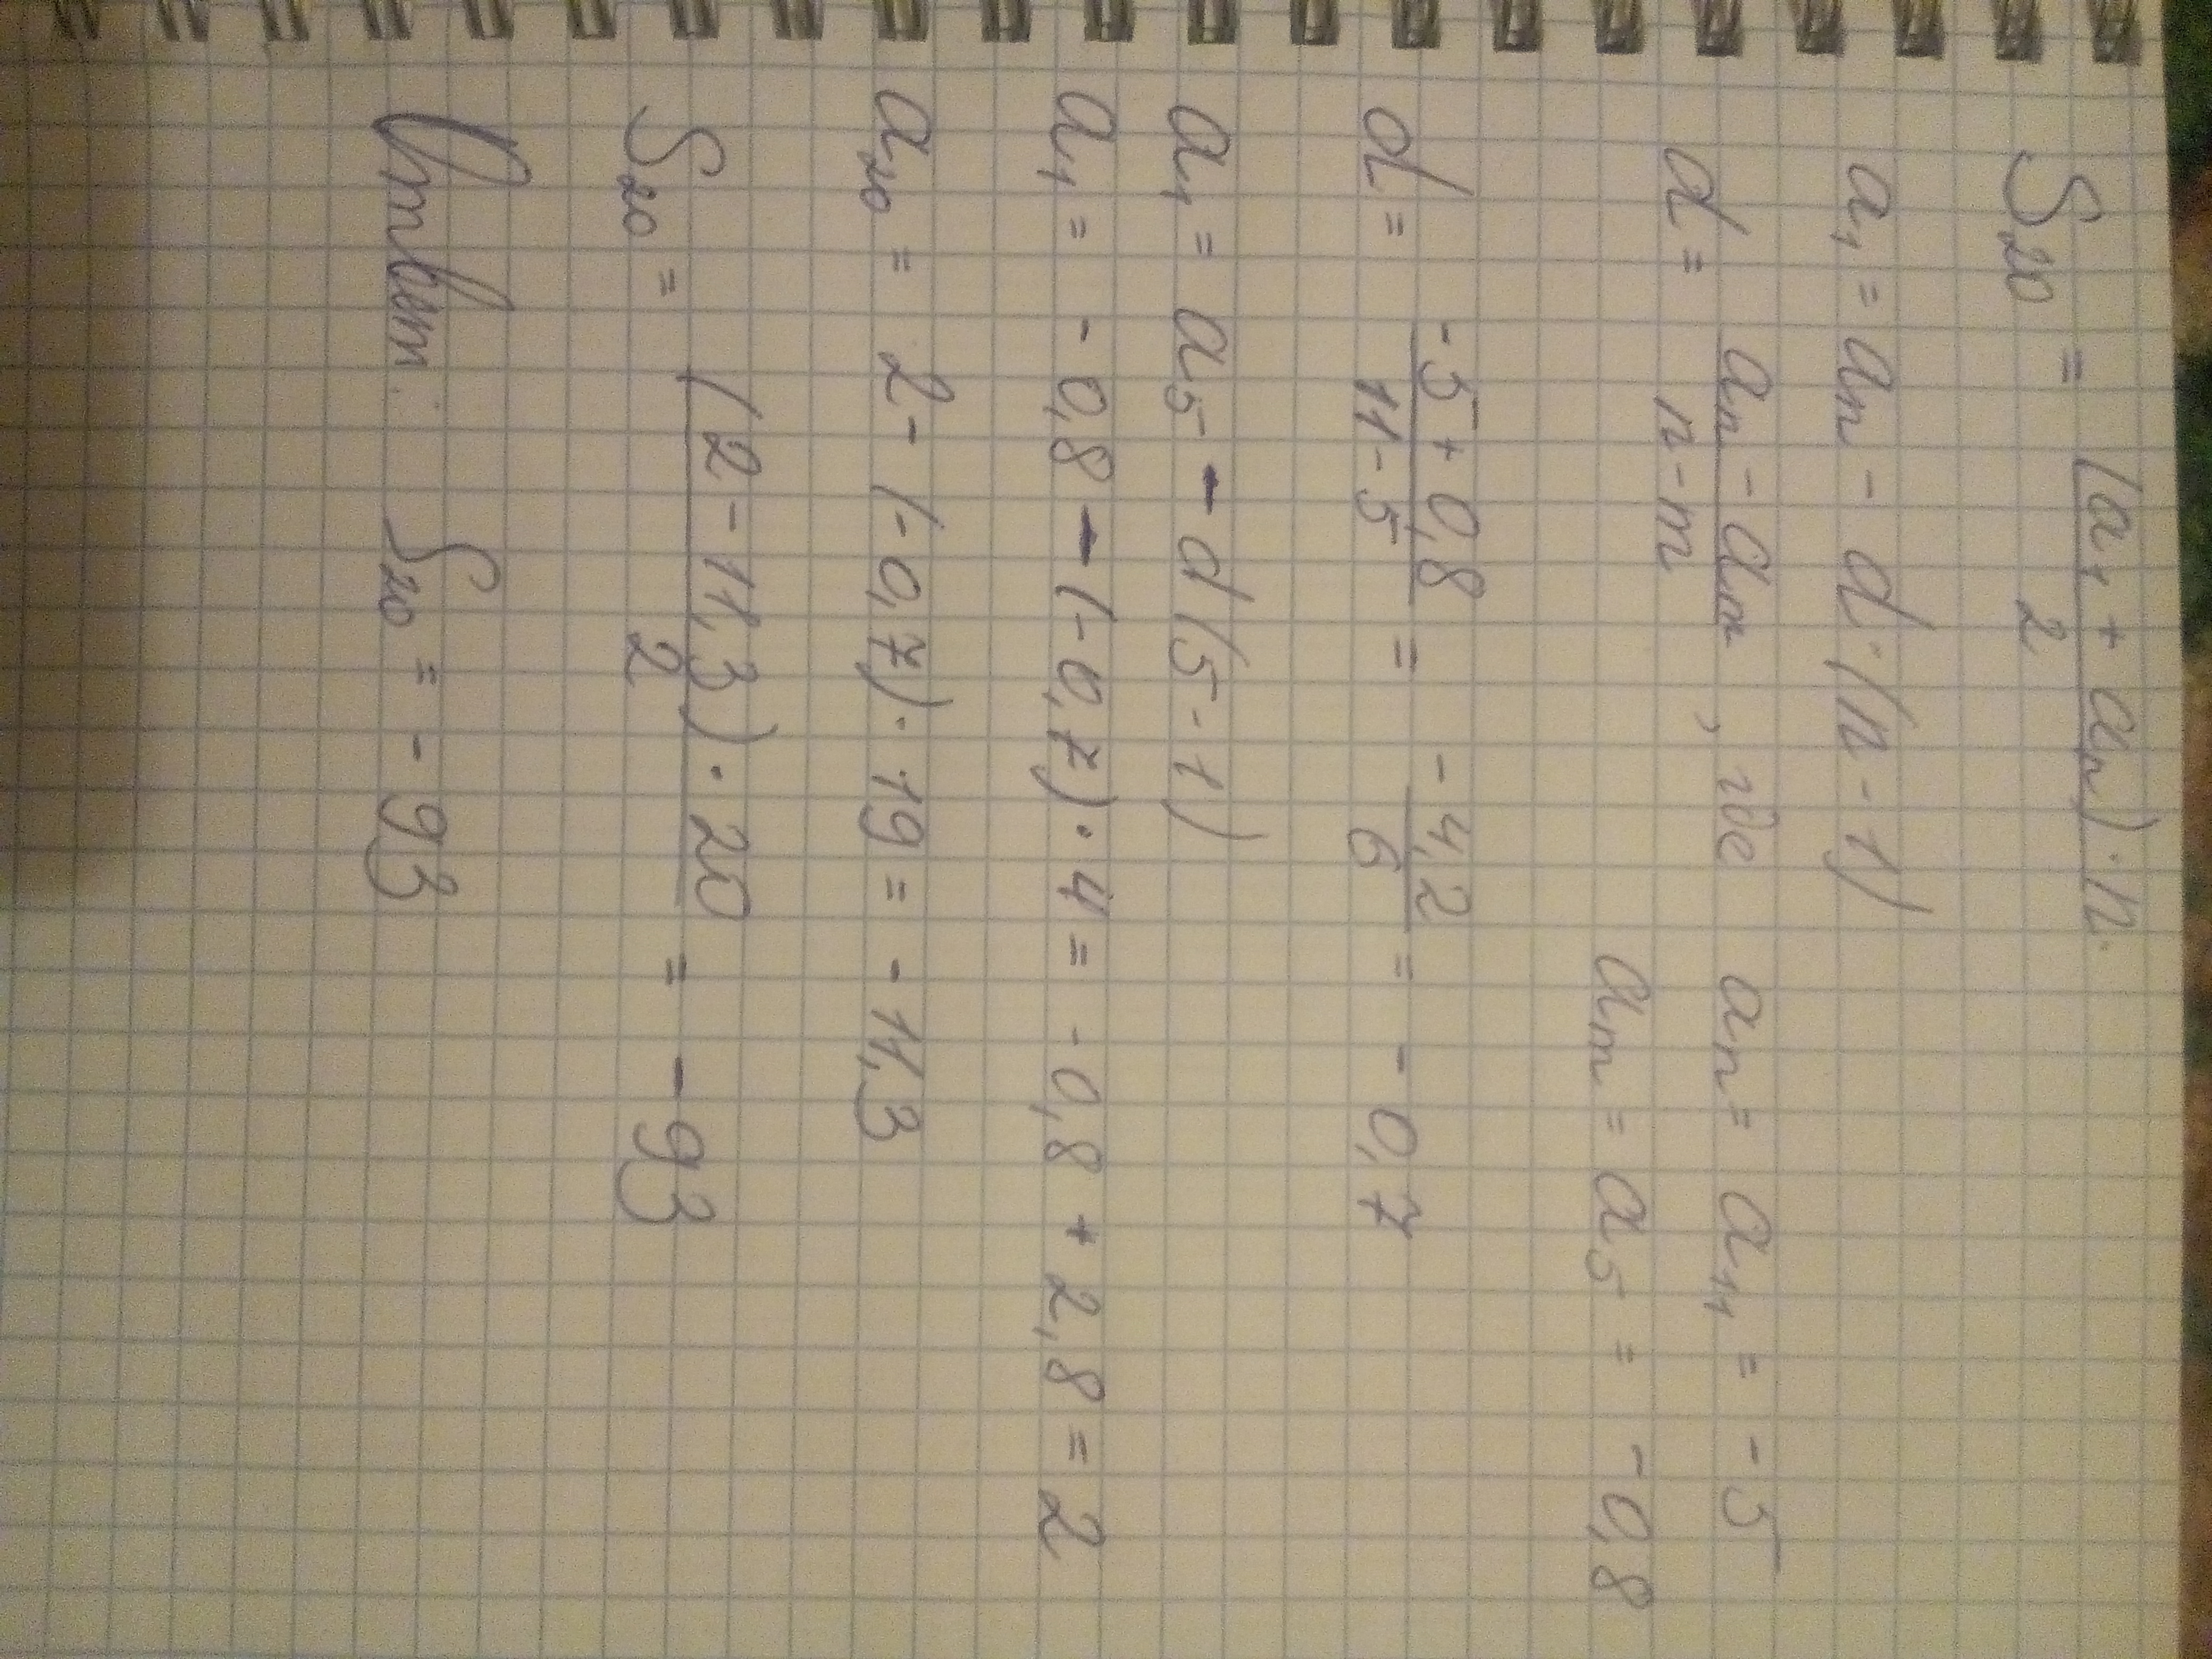 S₂₀ = (a₁ + aₙ) · n / 2
a₁ = aₙ - d · (n - 1)
d = (aₙ - aₘ) / (n - m) , где aₙ = a₁₁ = -5
aₘ = a₅ = -0,8
d = (-5 + 0,8) / (11 - 5) = -4,2 / 6 = -0,7
a₁ = a₅ - d (5 - 1)
a₁ = -0,8 - (-0,7) · 4 = -0,8 + 2,8 = 2
a₂₀ = 2 - (-0,7) · 19 = -11,3
S₂₀ = (2 - 11,3) · 20 / 2 = -93
Ответ: S₂₀ = -93